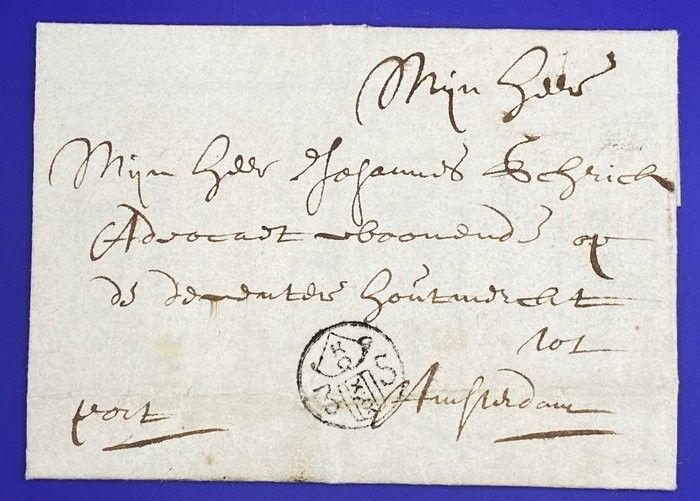 Mijn Heer
Mijn Heer Johannes Schrick
Advocaet woonende op
de deventer houtmerckt
tot
Amsterdam
port
3 S